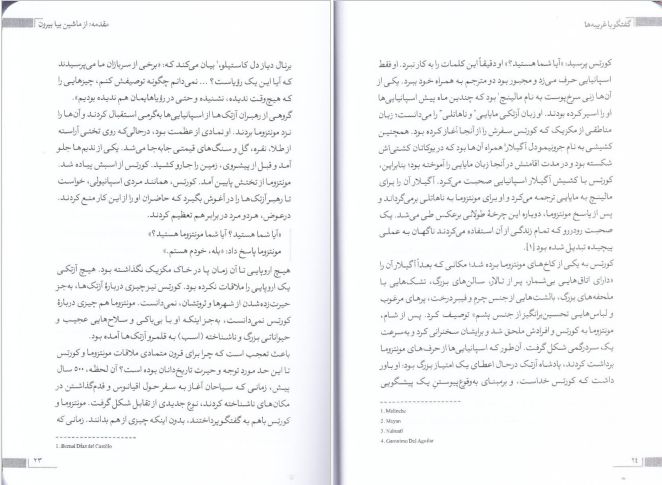 مقدمه: از ماشین بیا بیرون
برنال دیاز دل کاستیلو۱ بیان می‌کند که: «برخی از سربازان ما می‌پرسیدند
که آیا این یک رؤیاست؟ ... نمی‌دانم چگونه توصیفش کنم، چیزهایی را
که هیچ‌وقت ندیده، نشنیده و حتی در رؤیاهایمان هم ندیده بودیم».
گروهی از رهبران آزتک‌ها از اسپانیایی‌ها به‌گرمی استقبال کردند و آن‌ها را
نزد مونتزوما بردند. او نمادی از عظمت بود، درحالی‌که روی تختی آراسته
از طلا، نقره، گل و سنگ‌های قیمتی جابه‌جا می‌شد. یکی از ندیم‌ها جلو
آمد و قبل از پیشروی، زمین را جارو کشید. کورتس از اسبش پیاده شد.
مونتزوما از تختش پایین آمد. کورتس، همانند مردی اسپانیولی، خواست
تا رهبر آزتک‌ها را در آغوش بگیرد که حاضران او را از این کار منع کردند.
درعوض، هردو مرد در برابر هم تعظیم کردند.
«آیا شما هستید؟ آیا شما مونتزوما هستید؟»
مونتزوما پاسخ داد: «بله، خودم هستم.»
هیچ اروپایی تا آن زمان پا در خاک مکزیک نگذاشته بود. هیچ آزتکی
یک اروپایی را ملاقات نکرده بود. کورتس نیز چیزی دربارهٔ آزتک‌ها، به‌جز
حیرت‌زده‌شدن از شهرها و ثروتشان، نمی‌دانست. مونتزوما هم چیزی دربارهٔ
کورتس نمی‌دانست، به‌جز اینکه او با بی‌باکی و سلاح‌هایی عجیب و
حیواناتی بزرگ و ناشناخته (اسب) به قلمرو آزتک‌ها آمده بود.
باعث تعجب است که چرا برای قرون متمادی ملاقات مونتزوما و کورتس
تا این حد مورد توجه و حیرت تاریخ‌دانان بوده است؟ آن لحظه، ۵۰۰ سال
پیش، زمانی که سیاحان آغاز به سفر حول اقیانوس و قدم‌گذاشتن در
مکان‌های ناشناخته کردند، نوع جدیدی از تقابل شکل گرفت. مونتزوما و
کورتس باهم به گفتگو پرداختند، بدون اینکه چیزی از هم بدانند. زمانی که
1. Bernal Díaz del Castillo
۲۳
گفتگو با غریبه‌ها
کورتس پرسید: «آیا شما هستید؟» او دقیقاً این کلمات را به کار نبرد. او فقط
اسپانیایی حرف می‌زد و مجبور بود دو مترجم به همراه خود ببرد. یکی از
آن‌ها زنی سرخ‌پوست به نام مالینچ۱ بود که چندین ماه پیش اسپانیایی‌ها
او را اسیر کرده بودند. او زبان آزتکی مایایی۲ و ناهاتلی۳ را می‌دانست؛ زبان
مناطقی از مکزیک که کورتس سفرش را از آنجا آغاز کرده بود. همچنین
کشیشی به نام جرونیمو دل آگیلار۴ همراه آن‌ها بود که در یوکاتان کشتی‌اش
شکسته بود و در مدت اقامتش در آنجا زبان مایایی را آموخته بود؛ بنابراین،
کورتس با کشیش آگیلار اسپانیایی صحبت می‌کرد. آگیلار آن را برای
مالینچ به مایایی ترجمه می‌کرد و او برای مونتزوما به ناهاتلی برمی‌گرداند و
پس از پاسخ مونتزوما، دوباره این چرخهٔ طولانی برعکس طی می‌شد. یک
صحبت رودررو که تمام زندگی از آن استفاده می‌کردند ناگهان به عملی
پیچیده تبدیل شده بود [۱].
کورتس به یکی از کاخ‌های مونتزوما برده شد؛ مکانی که بعداً آگیلار آن را
«دارای اتاق‌هایی بی‌شمار، پر از تالار، سالن‌های بزرگ، تشک‌هایی با
ملحفه‌های بزرگ، بالشت‌هایی از جنس چرم و فیبر درخت، پرهای مرغوب
و لباس‌هایی تحسین‌برانگیز از جنس پشم» توصیف کرد. پس از شام،
مونتزوما به کورتس و افرادش ملحق شد و برایشان سخنرانی کرد و به‌سرعت
یک سردرگمی شکل گرفت. آن‌طور که اسپانیایی‌ها از حرف‌های مونتزوما
برداشت کردند، پادشاه آزتک درحال اعطای یک امتیاز بزرگ بود: او باور
داشت که کورتس خداست، و برمبنای به‌وقوع‌پیوستن یک پیشگویی
1. Malinche
2. Mayan
3. Nahuatl
4. Geronimo Del Aguilar
۲۴